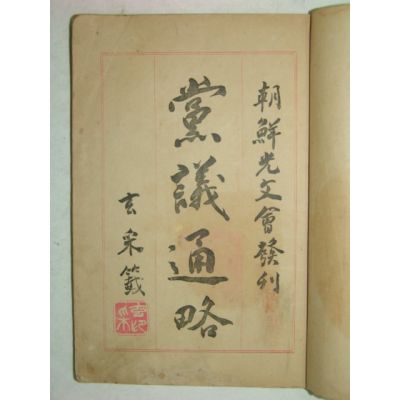 朝鮮光文會發刊
黨議通略
玄采籤